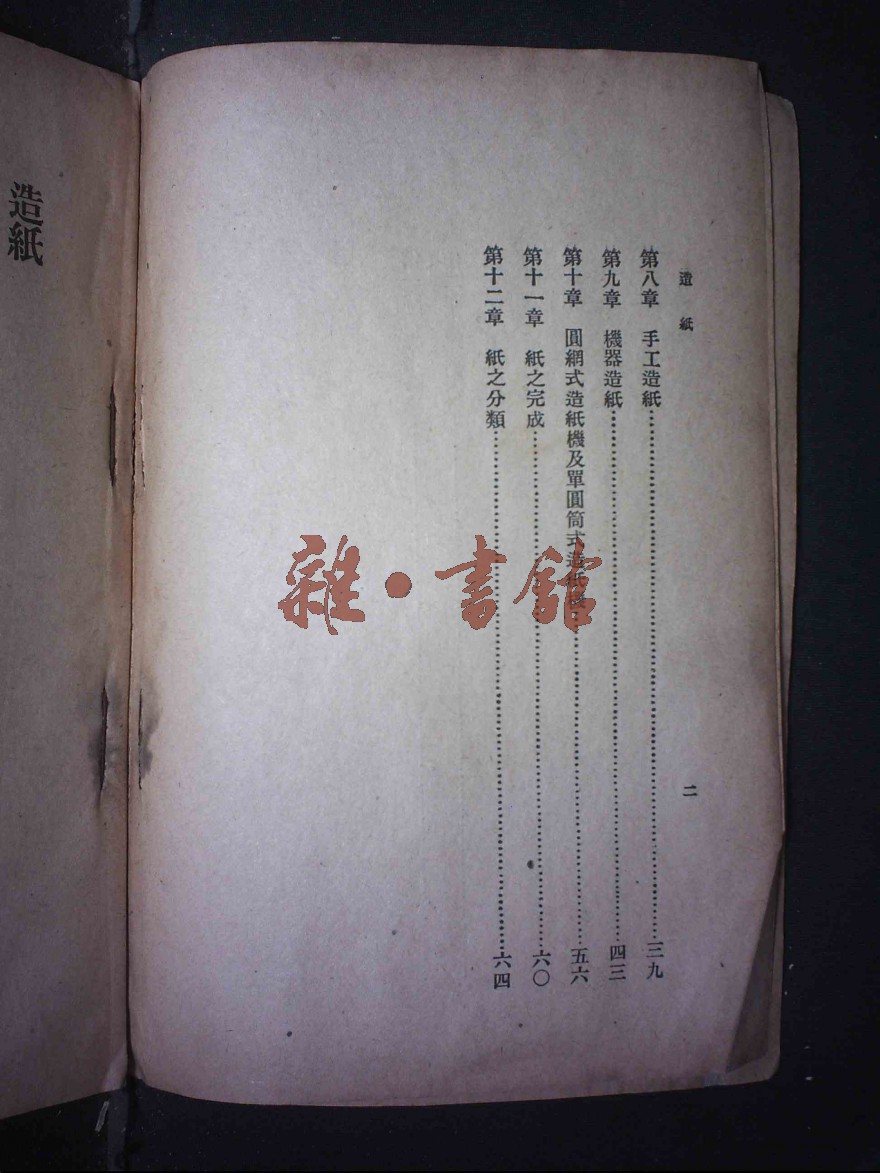 造紙
二
第八章　手工造紙……三九
第九章　機器造紙……四三
第十章　圓網式造紙機及單圓筒式造紙機……五六
第十一章　紙之完成……六〇
第十二章　紙之分類……六四
造紙
雜·書館